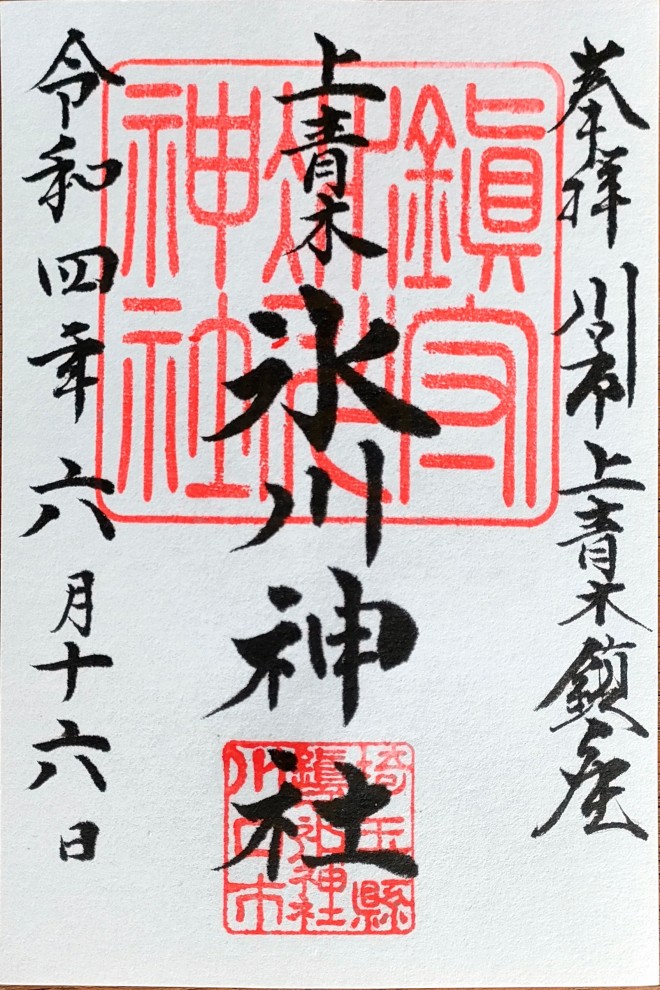 奉拝 川口市上青木鎮座
上青木
氷川神社
令和四年六月十六日
鎮守
神社
埼玉縣
川口市